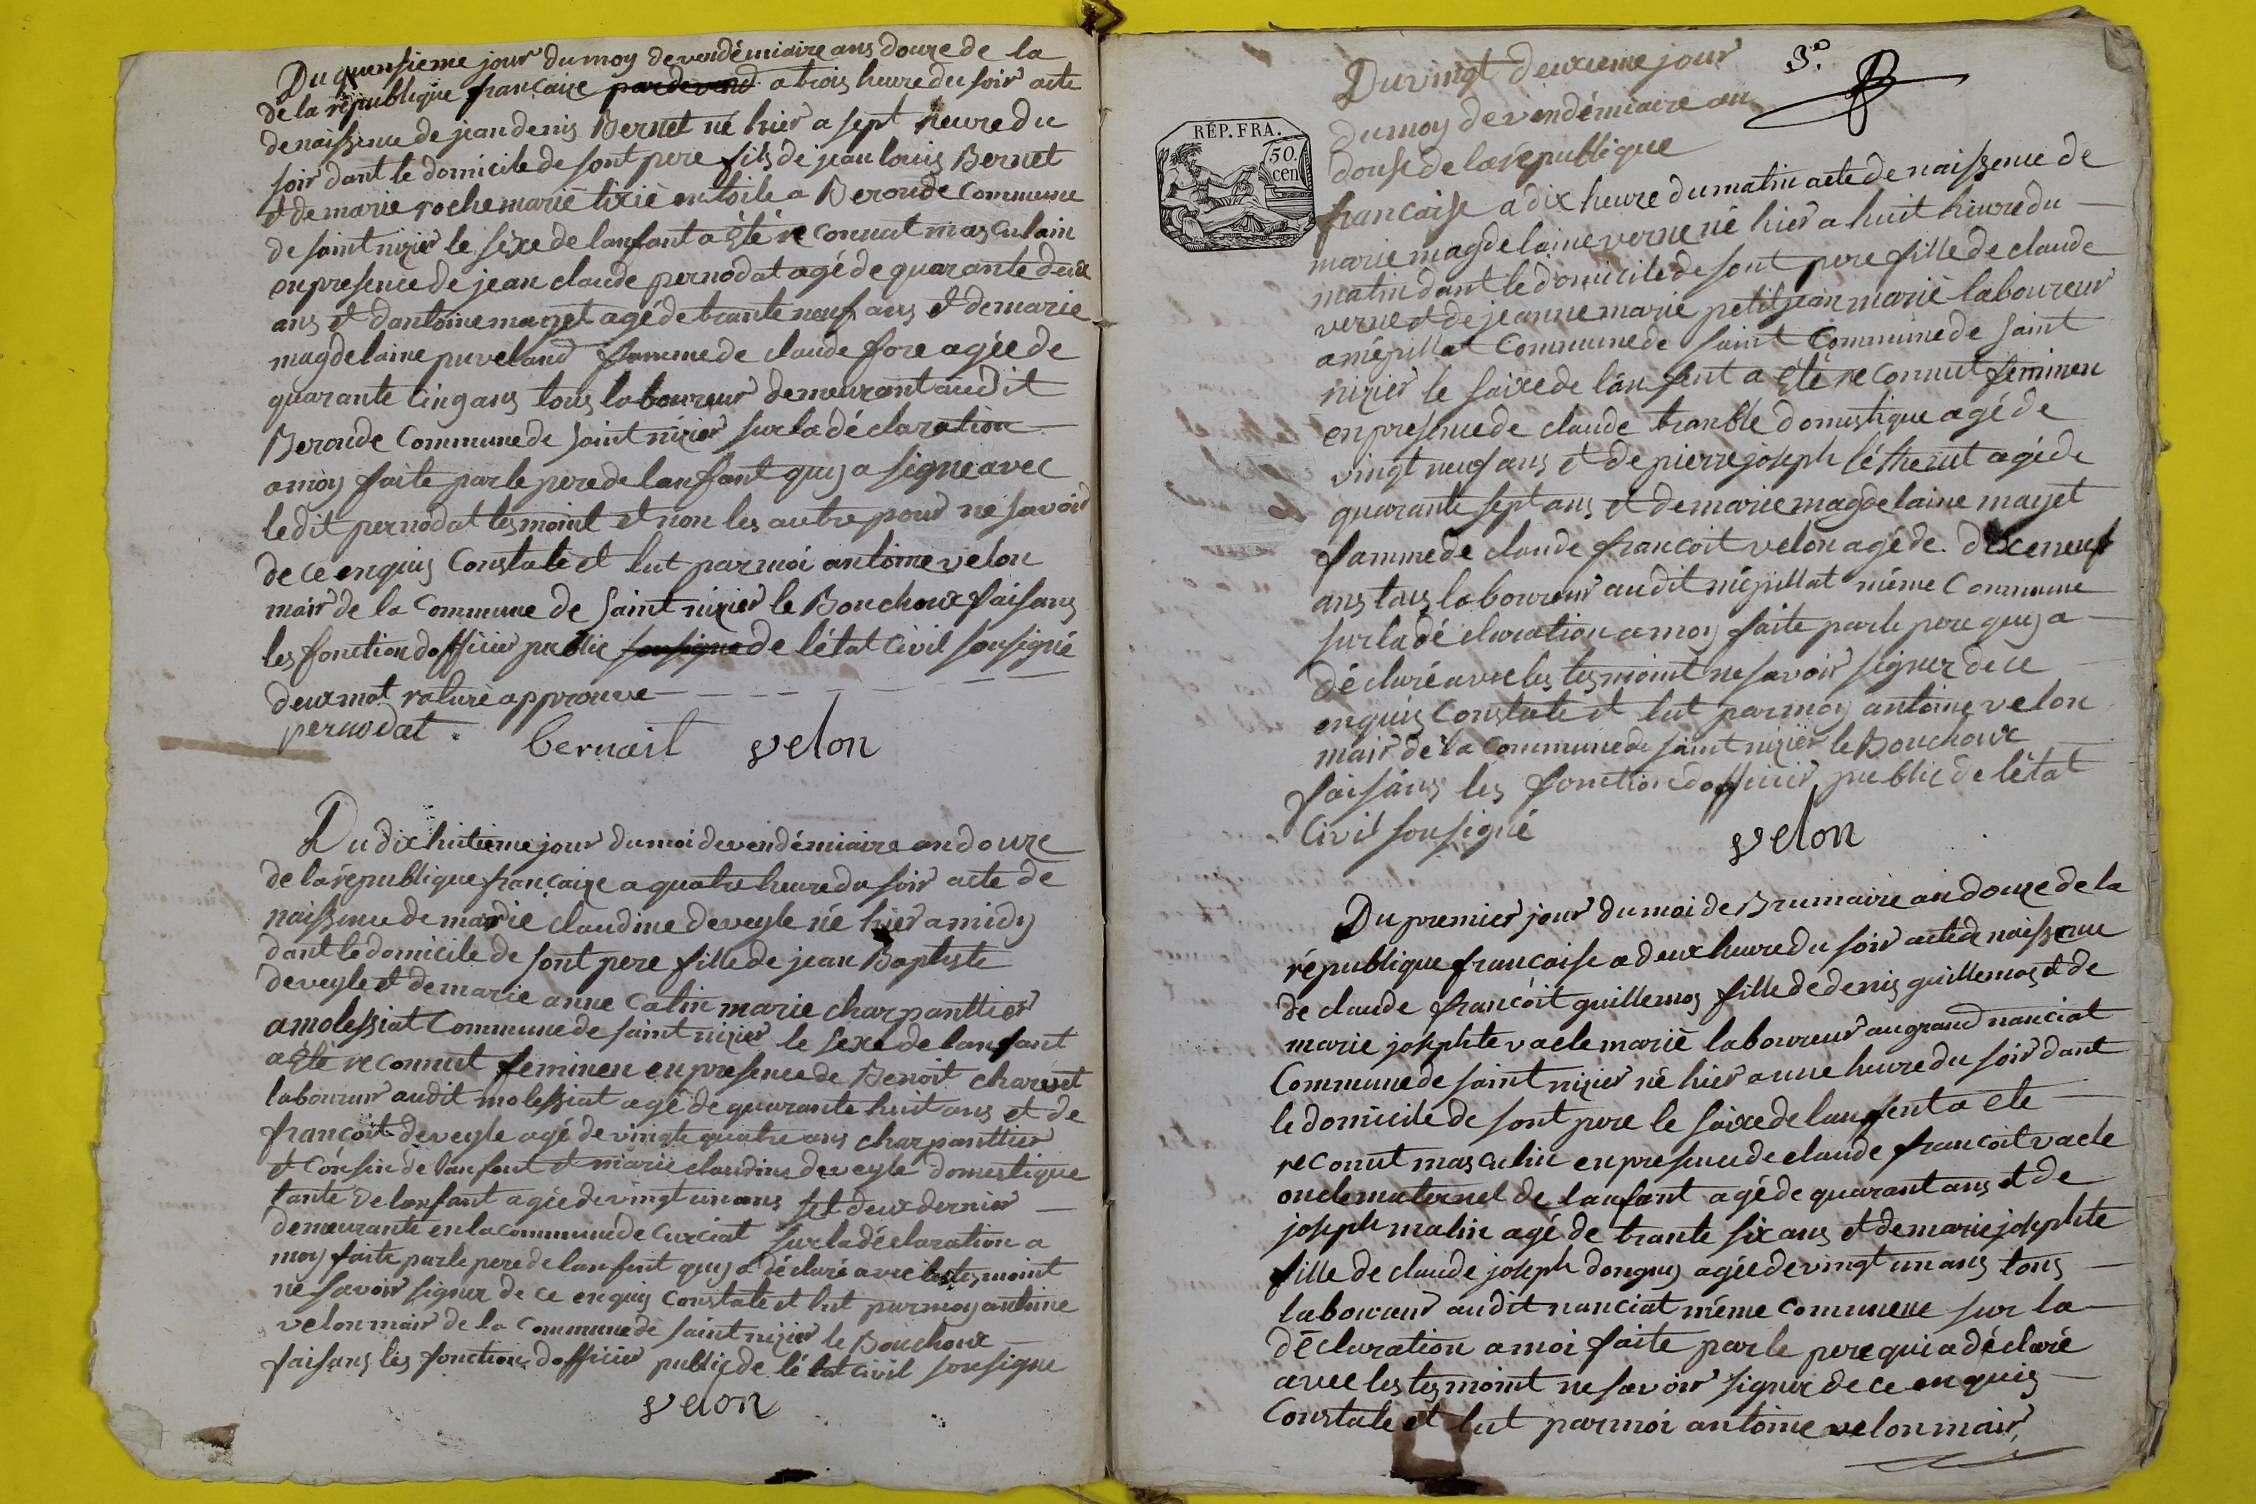 Du quensieme jour du moy de vendémiaire ans douze de la
de la république françaize pardevend a trois heure du soir acte
de naissence de jean denis Bernet né hier a sept heure du
soir dant le domicile de sont pere fils de jean louis Bernet
et de marie roche marié tixié en toile a Beroude Commune
de saint nizier le sexe de lanfant a été reconnut masculain
en presence de jean claude pernodat agé de quarante deux
ans et dantoine mayet agé de trante neuf ans et de marie
magdelaine puveland famme de claude fore agée de
quarante Cinq ans tous laboureur demeurant audit
Beroude Commune de saint nizier sur la déclaration
a moy faite par le pere de lanfant quy a signe avec
le dit pernodat tesmoint et non les autre pour ne savoir
de ce enquis Constate et lut par moi antoine velon
mair de la Commune de saint nizier le Bouchoux faisans
les fonction dofficier public sousigne de létat Civil sousigné
deux mot raturé approuve
pernodat. bernail velon
Du dix huitieme jour du moi de vendémiaire an douze
de la république françaize a quatre heure du soir acte de
naissence de marie claudine deveyle né hier a midy
dant le domicile de sont pere fille de jean Baptiste
deveyle et de marie anne Catin marie charpanttier
a molessiat Commune de saint nizier le sexe de lanfant
a été reconnut feminen en presence de Benoit charvet
laboureur audit molessiat agé de quarante huit ans et de
francoit deveyle agé de vingte quatre ans charpanttier
et Cousin de lanfant et marie claudine deveyle domestique
tante de lanfant agée de vingt un ans set deux dernier
demeurante en la commune de Curciat sur la déclaration a
moy faite par le pere de lanfent quy a déclaré avec les tesmoint
ne savoir signer de ce enquis Constate et lut par moy antoine
velon mair de la Commune de saint nizier le Bouchoux
faisans les fonction dofficier public de létat Civil sousigne
velon
3.e
Du vingt deuxieme jour
du moy de vendémiaire an
RÉP. FRA.
50. cen
douse de la république
francaise a dix heure du matin acte de naissence de
marie magdelaine verne né hier a huit heure du
matin dant le domicile de sont pere fille de claude
verne et de jeanne marie petitjean marié laboureur
a mépillat Commune de saint Commune de saint
nizier le saixe de lanfent a été reconnut féminen
en présence de claude tranblé domestique agé de
vingt neuf ans et de pierre joseph léthenet agé de
quarante sept ans et de marie magdelaine mayet
famme de claude francoit velon agé de. dixeneuf
ans tous laboureur audit mépillat même Commune
sur la déclaration a moy faite par le pere quy a
déclaré avec les tesmoint ne savoir signer de ce
enquis Constate et lut par moy antoine velon
mair de la Commune de saint nizier le Bouchoux
faisans les fonction dofficier public de létat
Civil sousigné
velon
Du premier jour du moi de Brumaire an douze de la
république francaise a deux heure du soir acte de naissence
de claude francoit guillemos fille de denis guillemos et de
marie josephte vacle marié laboureur au grand nanciat
Commune de saint nizier né hier a une heure du soir dant
le domicile de sont pere le saixe de lanfent a ete
reconut masculin en presence de claude francoit vacle
oncle maternel de lanfant agé de quarant ans et de
joseph matin agé de trante six ans et de marie josephte
fille de claude joseph donguy agée de vingt un ans tous
laboureur audit nanciat même Commune sur la
déclaration a moi faite par le pere qui a déclaré
avec les tesmoint ne savoir signer de ce enquis
Constate et lut par moi antoine velon mair